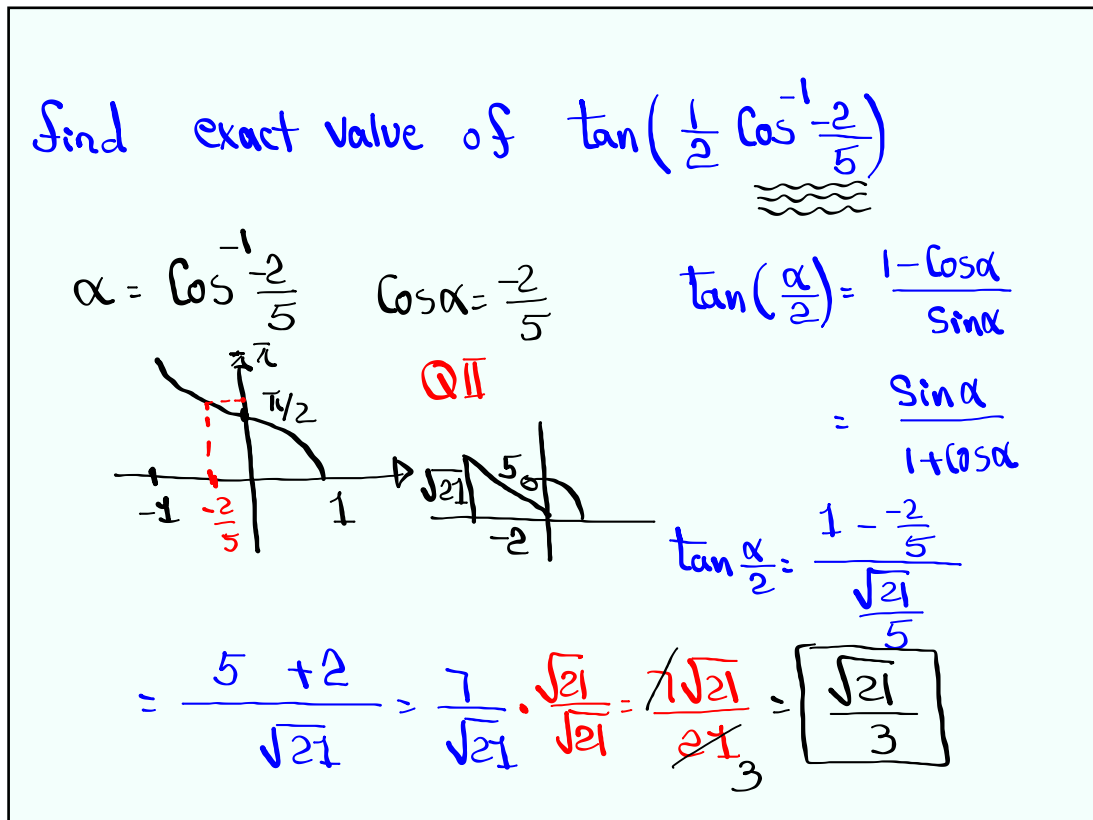 find exact value of tan(1/2 Cos⁻¹ -2/5)
α = Cos⁻¹ -2/5
Cosα = -2/5
tan(α/2) = (1-Cosα)/Sinα
= Sinα/(1+Cosα)
π
π/2
-1
-2/5
1
QII
√21
5
-2
tan α/2 = (1 - -2/5)/(√21/5)
= (5 +2)/√21 = 7/√21 · √21/√21 = 7√21/21 3 = √21/3